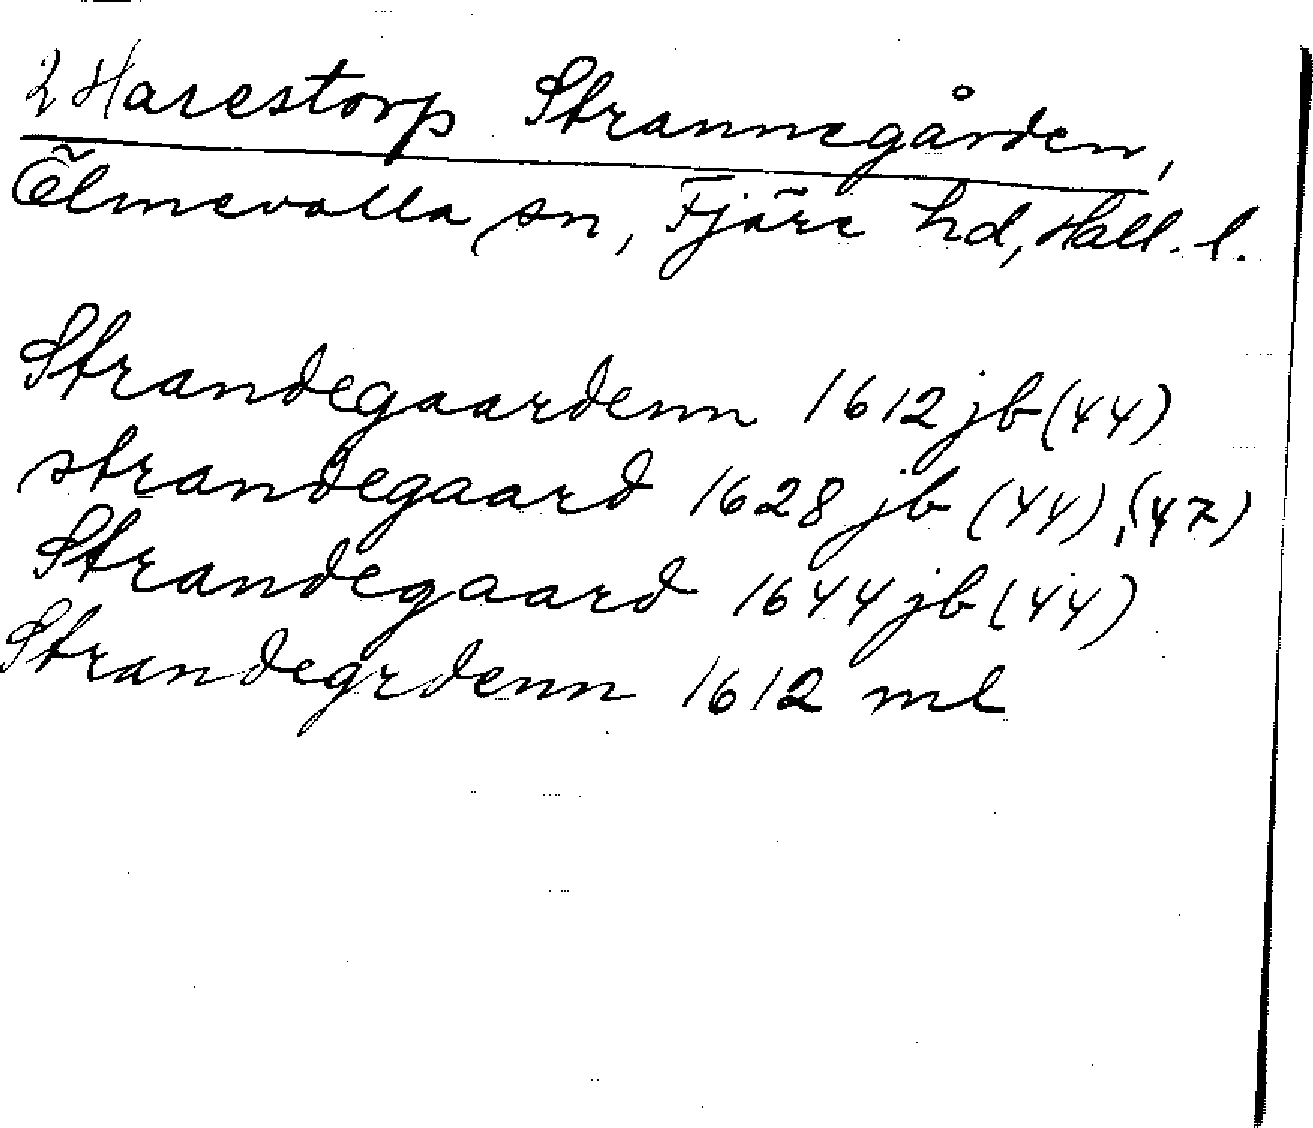 2 Harestorp Strannegården,
Ölmevalla sn, Fjäre hd, Hall. l.
Strandegaardenn 1612 jb (44)
strandegaard 1628 jb (44), (47)
Strandegaard 1644 jb (44)
Strandegrdenn 1612 ml